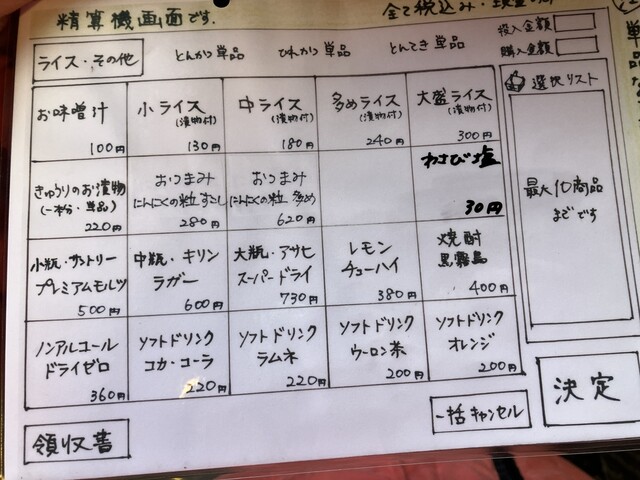 精算機画面です.
全て税込み・
ライス・その他
とんかつ単品
ひれかつ単品
とんてき単品
投入金額
購入金額
選択リスト
最大10商品
までです
お味噌汁
100円
小ライス
(漬物付)
130円
中ライス
(漬物付)
180円
多めライス
(漬物付)
240円
大盛ライス
(漬物付)
300円
きゅうりのお漬物
(一本分・単品)
220円
おつまみ
にんにくの粒 すこし
280円
おつまみ
にんにくの粒 多め
620円
わさび塩
30円
小瓶・サントリー
プレミアムモルツ
500円
中瓶・キリン
ラガー
600円
大瓶・アサヒ
スーパードライ
730円
レモン
チューハイ
380円
焼酎
黒霧島
400円
ノンアルコール
ドライゼロ
360円
ソフトドリンク
コカ・コーラ
220円
ソフトドリンク
ラムネ
220円
ソフトドリンク
ウーロン茶
200円
ソフトドリンク
オレンジ
200円
領収書
一括キャンセル
決定